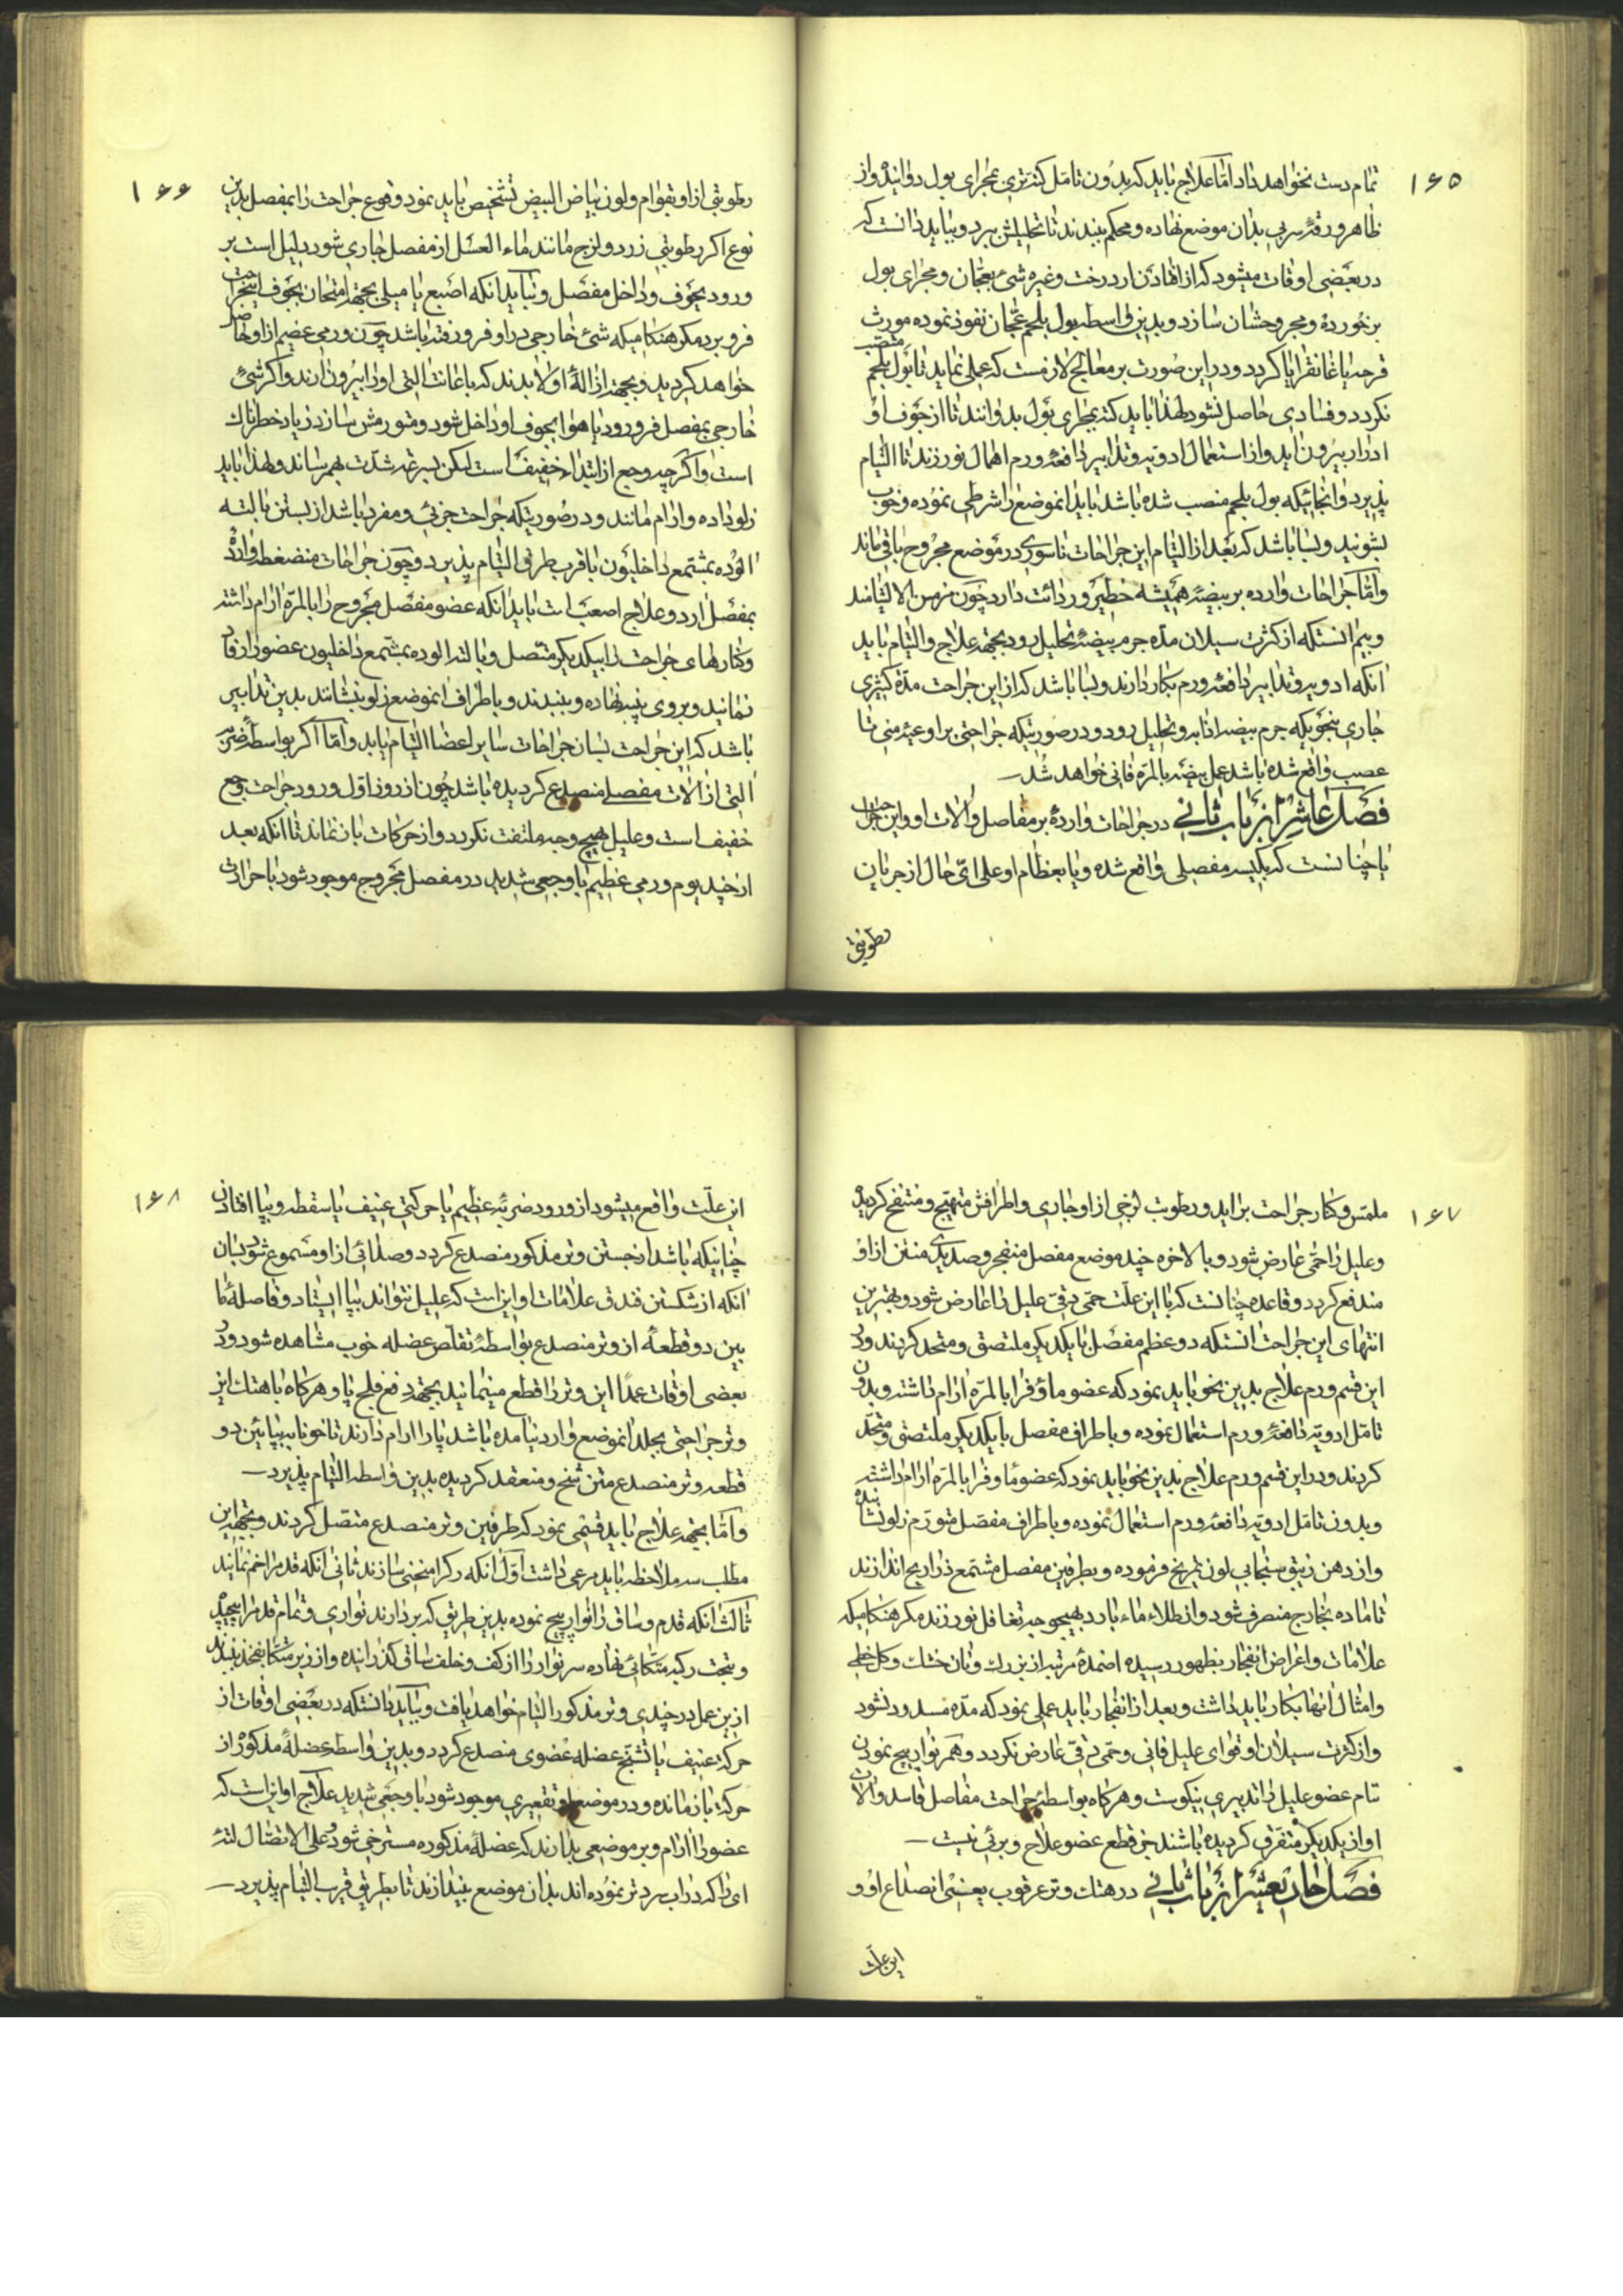 ۱۶۵
تمام دست نخواهد داد اما علاج باید که بدون تامل کتتری بمجرای بول دوانیده و از
ظاهر ورقهٔ سربی بدان موضع نهاده و محکم ببندند تا تحلیلش ببرد و بباید دانست که
در بعضی اوقات میشود که از افتادن از درخت و غیره شیء بعجان و مجرای بول
برخورده و مجروحشان سازد و بدین واسطه بول بلحم عجان نفوذ نموده مورث
قرحه یا غانقرایا گردد و در این صورت بر معالج لازمست که عملی نماید تا بول بلحم منصب
نگردد و فسادی حاصل نشود لهذا باید کتتر بمجرای بول بدوانند تا از جوف او
ادرار بیرون آید و از استعمال ادویه و تدابیر دافعهٔ ورم اهمال نورزند تا التیام
پذیرد و آنجائیکه بول بلحم منصب شده باشد باید آنموضع را شرطی نموده و خوب
بشویند و بسا باشد که بعد از التیام این جراحات ناسوری در موضع مجروح باقی ماند
و اما جراحات وارده بر بیضه همیشه خطیر و ردائت دارد چون مزمن الالتیامند
و بیم آنستکه از کثرت سیلان مده جرم بیضه تحلیل رود بجهة علاج و التیام باید
آنکه ادویه و تدابیر دافعهٔ ورم بکار دارند و بسا باشد که از این جراحت مدهٔ کثیری
جاری بنحویکه جرم بیضه را تابه و تحلیل رود و در صورتیکه جراحتی بر اوعیهٔ منی تا
عصب واقع شده باشد عمل بیضه بالمره فانی خواهد شد
فصل عاشر از باب ثانی در جراحات وارده بر مفاصل و آلات او و این جراحات
یا چنانست که بکیسه مفصلی واقع شده و یا بعظام او علی ای حال از جریان
رطوبتی
۱۶۶
رطوبتی از او بقوام و لون بیاض البیض تشخیص باید نمود وقوع جراحت را بمفصل بدین
نوع اگر رطوبتی زرد و لزج مانند ماء العسل از مفصل جاری شود دلیل است بر
ورود بجوف و داخل مفصل و نباید آنکه اصبع یا میلی بجهة امتحان بجوف این جراحت
فرو برد مگر هنگامیکه شیء خارجی در او فرو رفته باشد چون ورمی عظیم از او حاصل
خواهد گردید و بجهة ازالهٔ او لابدند که باعانت آلتی او را بیرون آرند و اگر شیء
خارجی بمفصل فرو رود یا هوا بجوف او داخل شود و متورمش سازد زیاد خطرناک
است و اگر چه وجع از ابتداء خفیف است لیکن بسرعة شدت بهم رساند و لهذا باید
زلو داده و آرام مانند و در صورتیکه جراحت جزئی و مفرد باشد از بستن بالتهٔ
آلوده بمشمع داخلیون باقرب طرق التیام پذیرد و چون جراحات منضغطه وارد
بمفصل آرد و علاج اصعب است باید آنکه عضو مفصل مجروح را بالمره آرام داشته
و کنارهای جراحت را بیکدیگر متصل و بالته آلوده بمشمع داخلیون عضو را وقا
نمایند و بروی پنبه نهاده و ببندند و باطراف آنموضع زلو بنشانند بدین تدابیر
باشد که این جراحت بسان جراحات سایر اعضا التیام یابد و اما اگر بواسطهٔ ضرب
آلتی از آلات مفصلی منصدع گردیده باشد چون از روز اول ورود جراحت وجع
خفیف است و علیل بهیچ وجه ملتفت نگردد و از حرکات باز نماند تا آنکه بعد
از چند یوم ورمی عظیم با وجعی شدید در مفصل مجروح موجود شود با حرارت
۱۶۷
ملمس و کنار جراحت برآید و رطوبت لزجی از او جاری و اطرافش متهیج و منتفخ گردیده
و علیل را حمی عارض شود و بالاخره چند موضع مفصل منفجر و صدیدی منتن از او
مندفع گردد و قاعده چنانست که با این علت حمی دقی علیل را عارض شود و بهترین
انتهای این جراحت آنستکه دو عظم مفصل با یکدیگر ملتصق و متحد گردند و در
این قسم ورم علاج بدین نحو باید نمود که عضو ماؤف را بالمره آرام داشته و بدون
تامل ادویهٔ دافعهٔ ورم استعمال نموده و باطراف مفصل با یکدیگر ملتصق و متحد
گردند و در این قسم ورم علاج بدین نحو باید نمود که عضو ماؤف را بالمره آرام داشته
و بدون تامل ادویهٔ دافعهٔ ورم استعمال نموده و باطراف مفصل متورم زلو نشانیده
و از دهن زیبق سنجابی لون تمریخ فرموده و بطرفین مفصل مشمع ذراریح اندازند
تا ماده بخارج منصرف شود و از طلاء ماء بارد بهیچوجه تغافل نورزند مگر هنگامیکه
علامات و اعراض انفجار بظهور رسیده اضمدهٔ مرتبه از بزرک و نان خشک و گل خطمی
و امثال آنها بکار باید داشت و بعد از انفجار باید عملی نمود که مده مسدود نشود
و از کثرت سیلان او قوای علیل فانی و حمی دقی عارض نگردد و هم نوار پیچ نمودن
تمام عضو علیل را تدبیری نیکوست و هر گاه بواسطهٔ جراحت مفاصل فاسد و آلات
او از یکدیگر متفرق گردیده باشند جز قطع عضو علاج و برئی نیست
فصل حادیعشر از باب ثانی در هتک وتر عرقوب یعنی انصداع او و
این علت
۱۶۸
این علت واقع میشود از ورود ضربهٔ عظیم یا حرکتی عنیف یا سقطه و بپا افتادن
چنانیکه باشد از جستن وتر مذکور منصدع گردد و صدائی از او مسموع شود بسان
آنکه از شکستن فندق علامات او این است که علیل نتواند بپا ایستاد و فاصلهٔ ما
بین دو قطعه از وتر منصدع بواسطهٔ تقلص عضله خوب مشاهده شود و در
بعضی اوقات عمدا این وتر را قطع مینمایند بجهة دفع فلج پا و هر گاه با هتک این
وتر جراحتی بجلد آنموضع وارد نیامده باشد پا را آرام دارند تا خونابه بپائین دو
قطعه وتر منصدع متن شخ و منعقد گردیده بدین واسطه التیام پذیرد
و اما بجهة علاج باید قسمی نمود که طرفین وتر منصدع متصل گردند و بجهة این
مطلب سه ملاحظه باید مرعی داشت اول آنکه رکبه را منحنی سازند ثانی آنکه قدم را خم نمایند
ثالث آنکه قدم و ساق را نوار پیچ نموده بدین طریق که بردارند نواری و تمام قدم را بپیچند
و بتحت رکبه متکائی نهاده سر نوار را از کف و خلف ساق گذرانیده و از زیر متکا بفخذ ببندند
ازین عمل در چندی وتر مذکور التیام خواهد یافت و بباید دانستکه در بعضی اوقات از
حرکت عنیف یا تشنج عضله عضوی منصدع گردد و بدین واسطه عضلهٔ مذکوره از
حرکة باز مانده و در موضع او تقعیری موجود شود با وجعی شدید علاج او این است که
عضو را آرام و بر موضعی بدارند که عضلهٔ مذکوره مسترخی شود و علی الاتصال لتهٔ
ای را که در آب سرد تر نموده اند بدان موضع بیندازند تا بطریق قریب التیام پذیرد